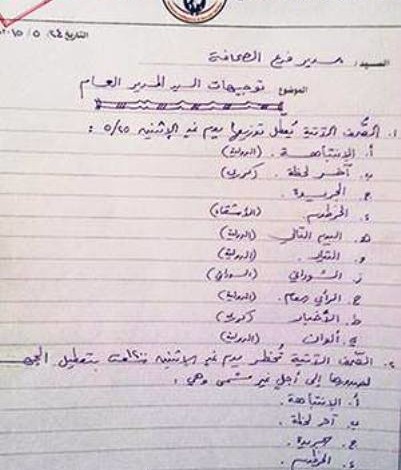 التاريخ ٢٤ / ٥ / ٢٠١٥
السيد/ مدير فرع الصحافة
الموضوع توجيهات السيد المدير العام
١. الصحف الآتية يُعطل توزيعها يوم غدٍ الإثنين ٥/٢٥ :
أ. الإنتباهة . (الدولية)
ب. آخر لحظة .
ج. الجريدة .
د. الخرطوم (الأشقاء)
هـ. اليوم التالي (الدولية)
و. التيار . (الدولية)
ز. السوداني (السوداني)
ح. الرأي العام . (الدولية)
ط. الأخبار
ي. ألوان . (الدولية)
٢. الصحف الآتية تُحظر يوم غدٍ الإثنين بتعطيل
صدورها إلى أجل غير مسمى وهي .
أ. الإنتباهة .
ب. آخر لحظة .
ج. جريدة .
د. الخرطوم .